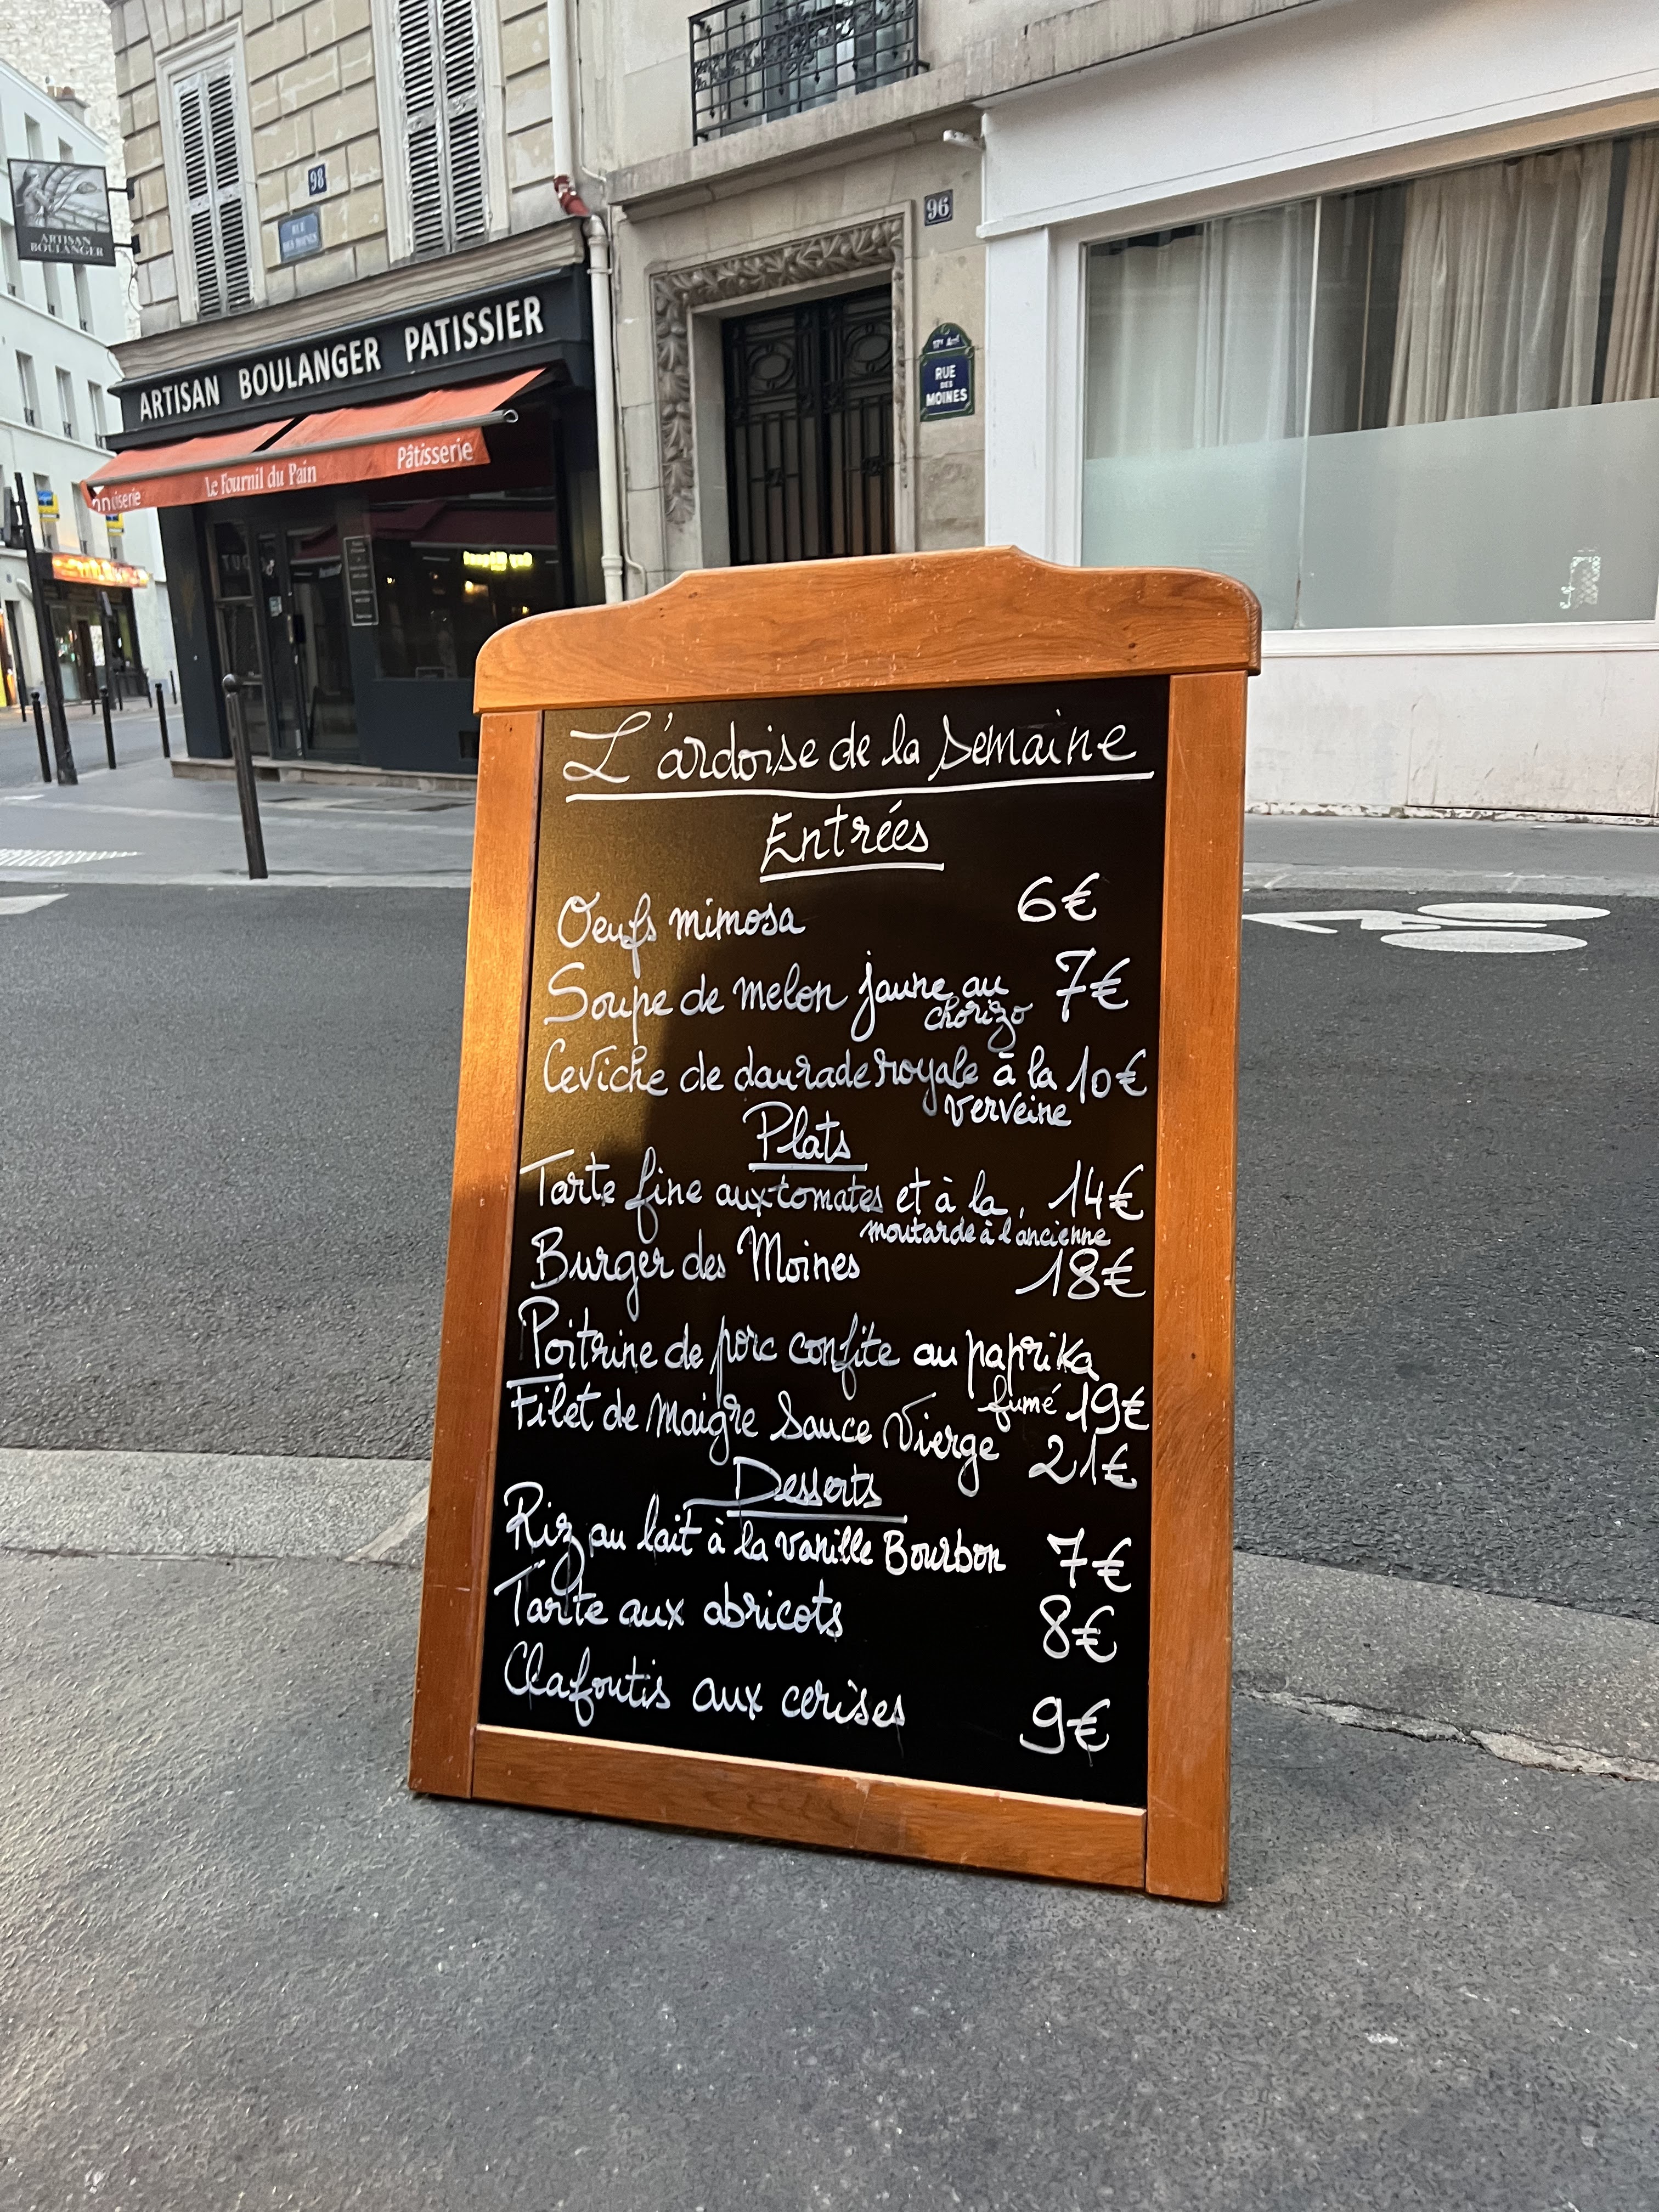 ARTISAN
BOULANGER
98
RUE
DES MOINES
96
ARTISAN BOULANGER PATISSIER
Le Fournil du Pain
Pâtisserie
17e Arrt
RUE
DES
MOINES
L'ardoise de la semaine
Entrées
Oeufs mimosa 6€
Soupe de melon jaune au 7€
chorizo
Ceviche de daurade royale à la 10€
verveine
Plats
Tarte fine aux tomates et à la 14€
moutarde à l'ancienne
Burger des Moines 18€
Poitrine de porc confite au paprika
fumé 19€
Filet de Maigre Sauce Vierge 21€
Desserts
Riz au lait à la vanille Bourbon 7€
Tarte aux abricots 8€
Clafoutis aux cerises 9€